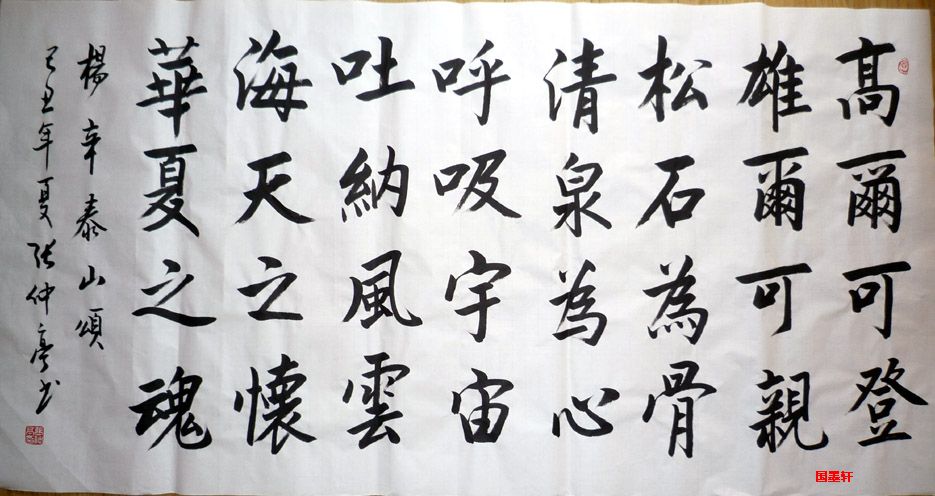 高爾可登
雄爾可親
松石為骨
清泉為心
呼吸宇宙
吐納風雲
海天之懷
華夏之魂
楊辛泰山頌
己丑年夏张仲亭书
国墨轩